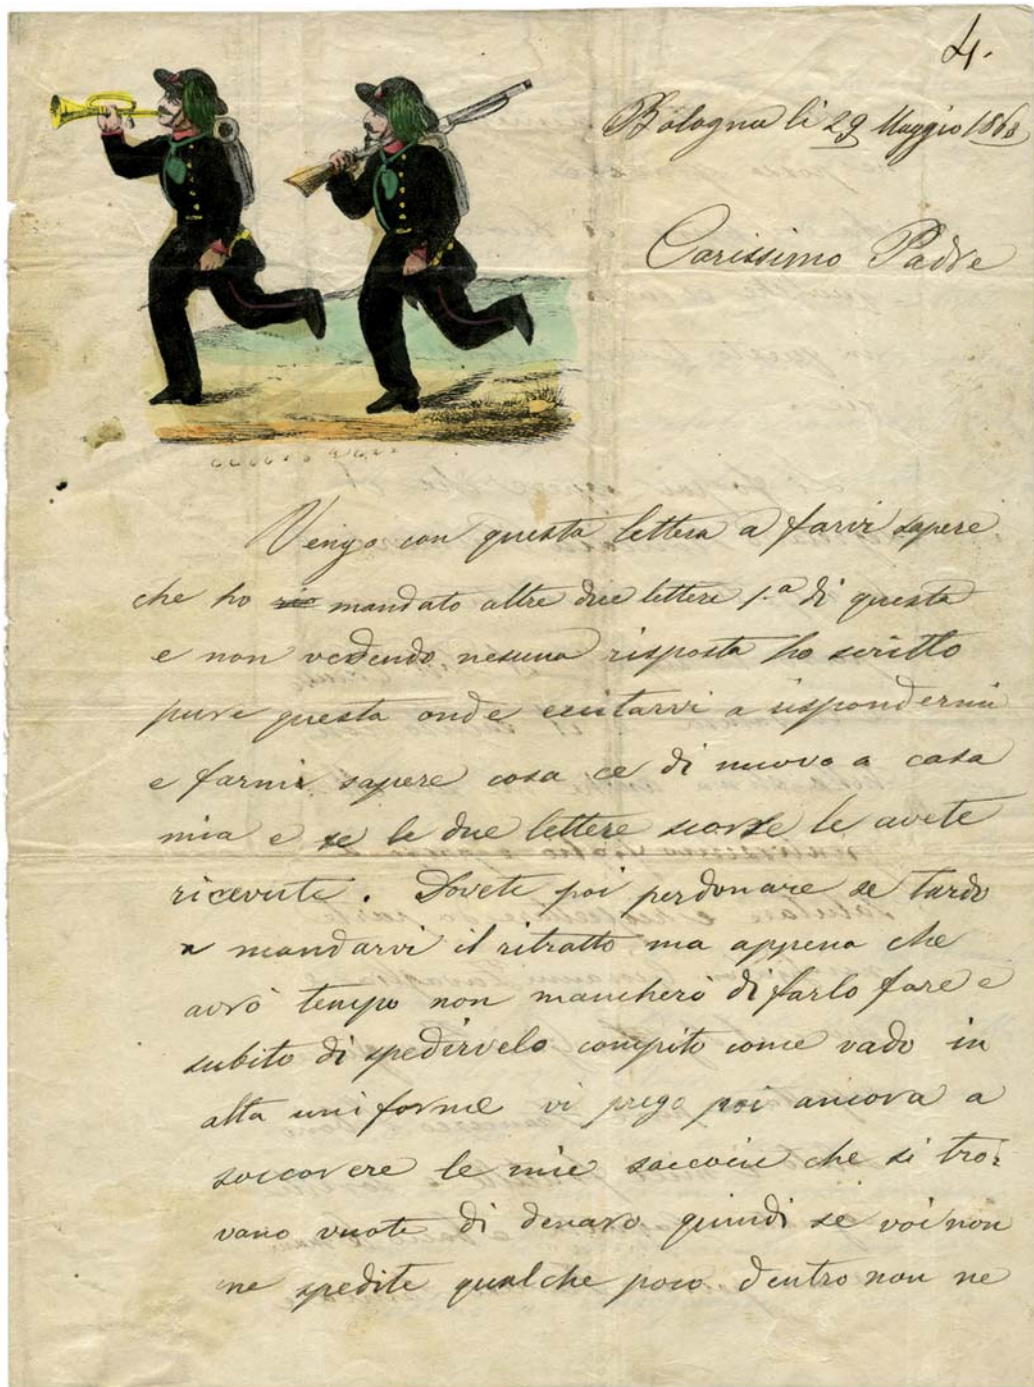 4.
Bologna li 29 Maggio 1863
Carissimo Padre
Vengo con questa lettera a farvi sapere
che ho mandato altre due lettere 1.a di questa
e non vedendo nesuna risposta ho scritto
pure questa onde ecitarvi a rispondermi
e farmi sapere cosa ce di nuovo a casa
mia e se le due lettere scorse le avete
ricevute. Dovete poi perdonare se tardo
a mandarvi il ritratto ma appena che
avrò tempo non mancherò di farlo fare e
subito di spedirvelo compito come vado in
alta uniforme vi prego poi ancora a
soccorere le mie saccocie che si tro-
vano vuote di denaro quindi se voi non
ne spedite qualche poco dentro non ne